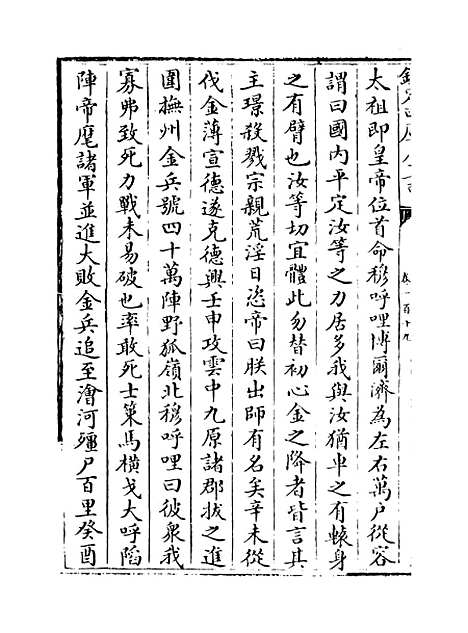 太祖即皇帝位首命穆呼哩博爾濟為左右萬戶從容
謂曰國内平定汝等之力居多我與汝猶車之有轅身
之有臂也汝等切宜體此勿替初心金之降者皆言其
主璟殺戮宗親荒淫日恣帝曰朕出師有名矣辛未從
伐金薄宣德遂克德興壬申攻雲中九原諸郡拔之進
圍撫州金兵號四十萬陣野狐嶺北穆呼哩曰彼衆我
寡弗致死力戰未易破也率敢死士策馬橫戈大呼陷
陣帝麾諸軍並進大敗金兵追至澮河殭尸百里癸酉